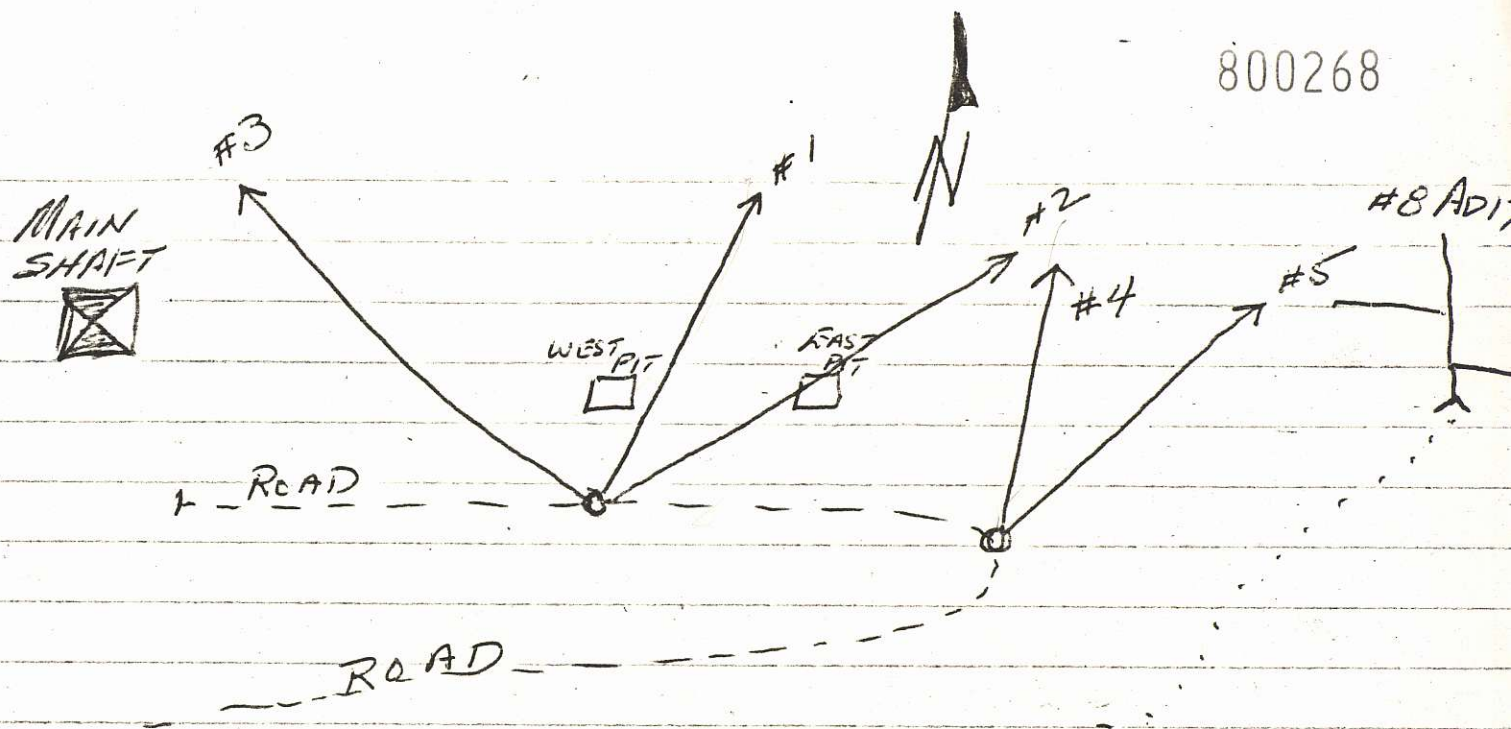 800268
#3
#1
N
#2
#8 ADIT
MAIN
SHAFT
#5
#4
WEST
PIT
EAST
PIT
ROAD
ROAD